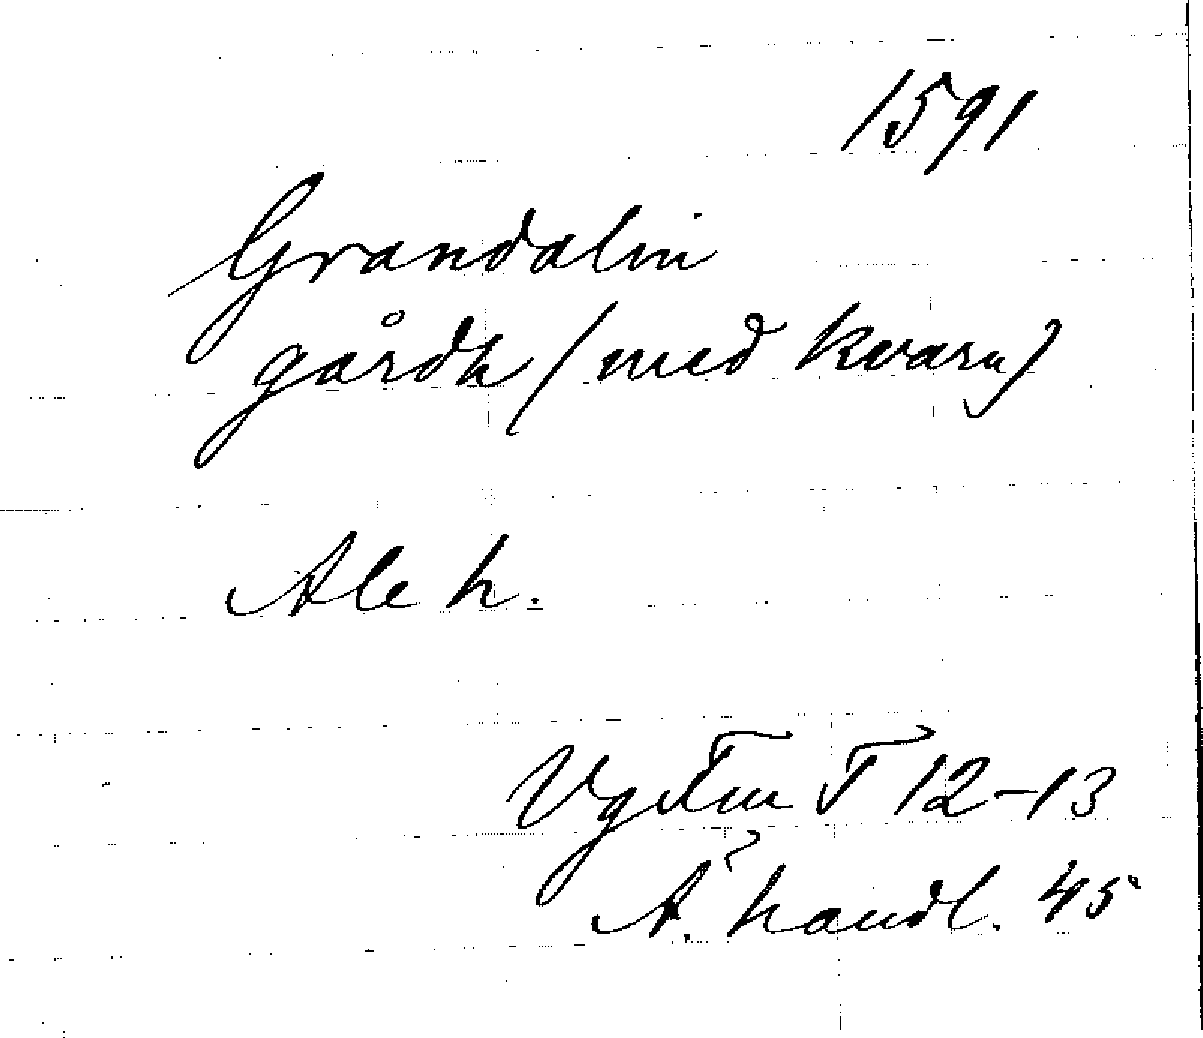 1591
Grandalin
gårdh (med kvarn)
Ale h.
Vg Fm T 12-13
A. handl. 45